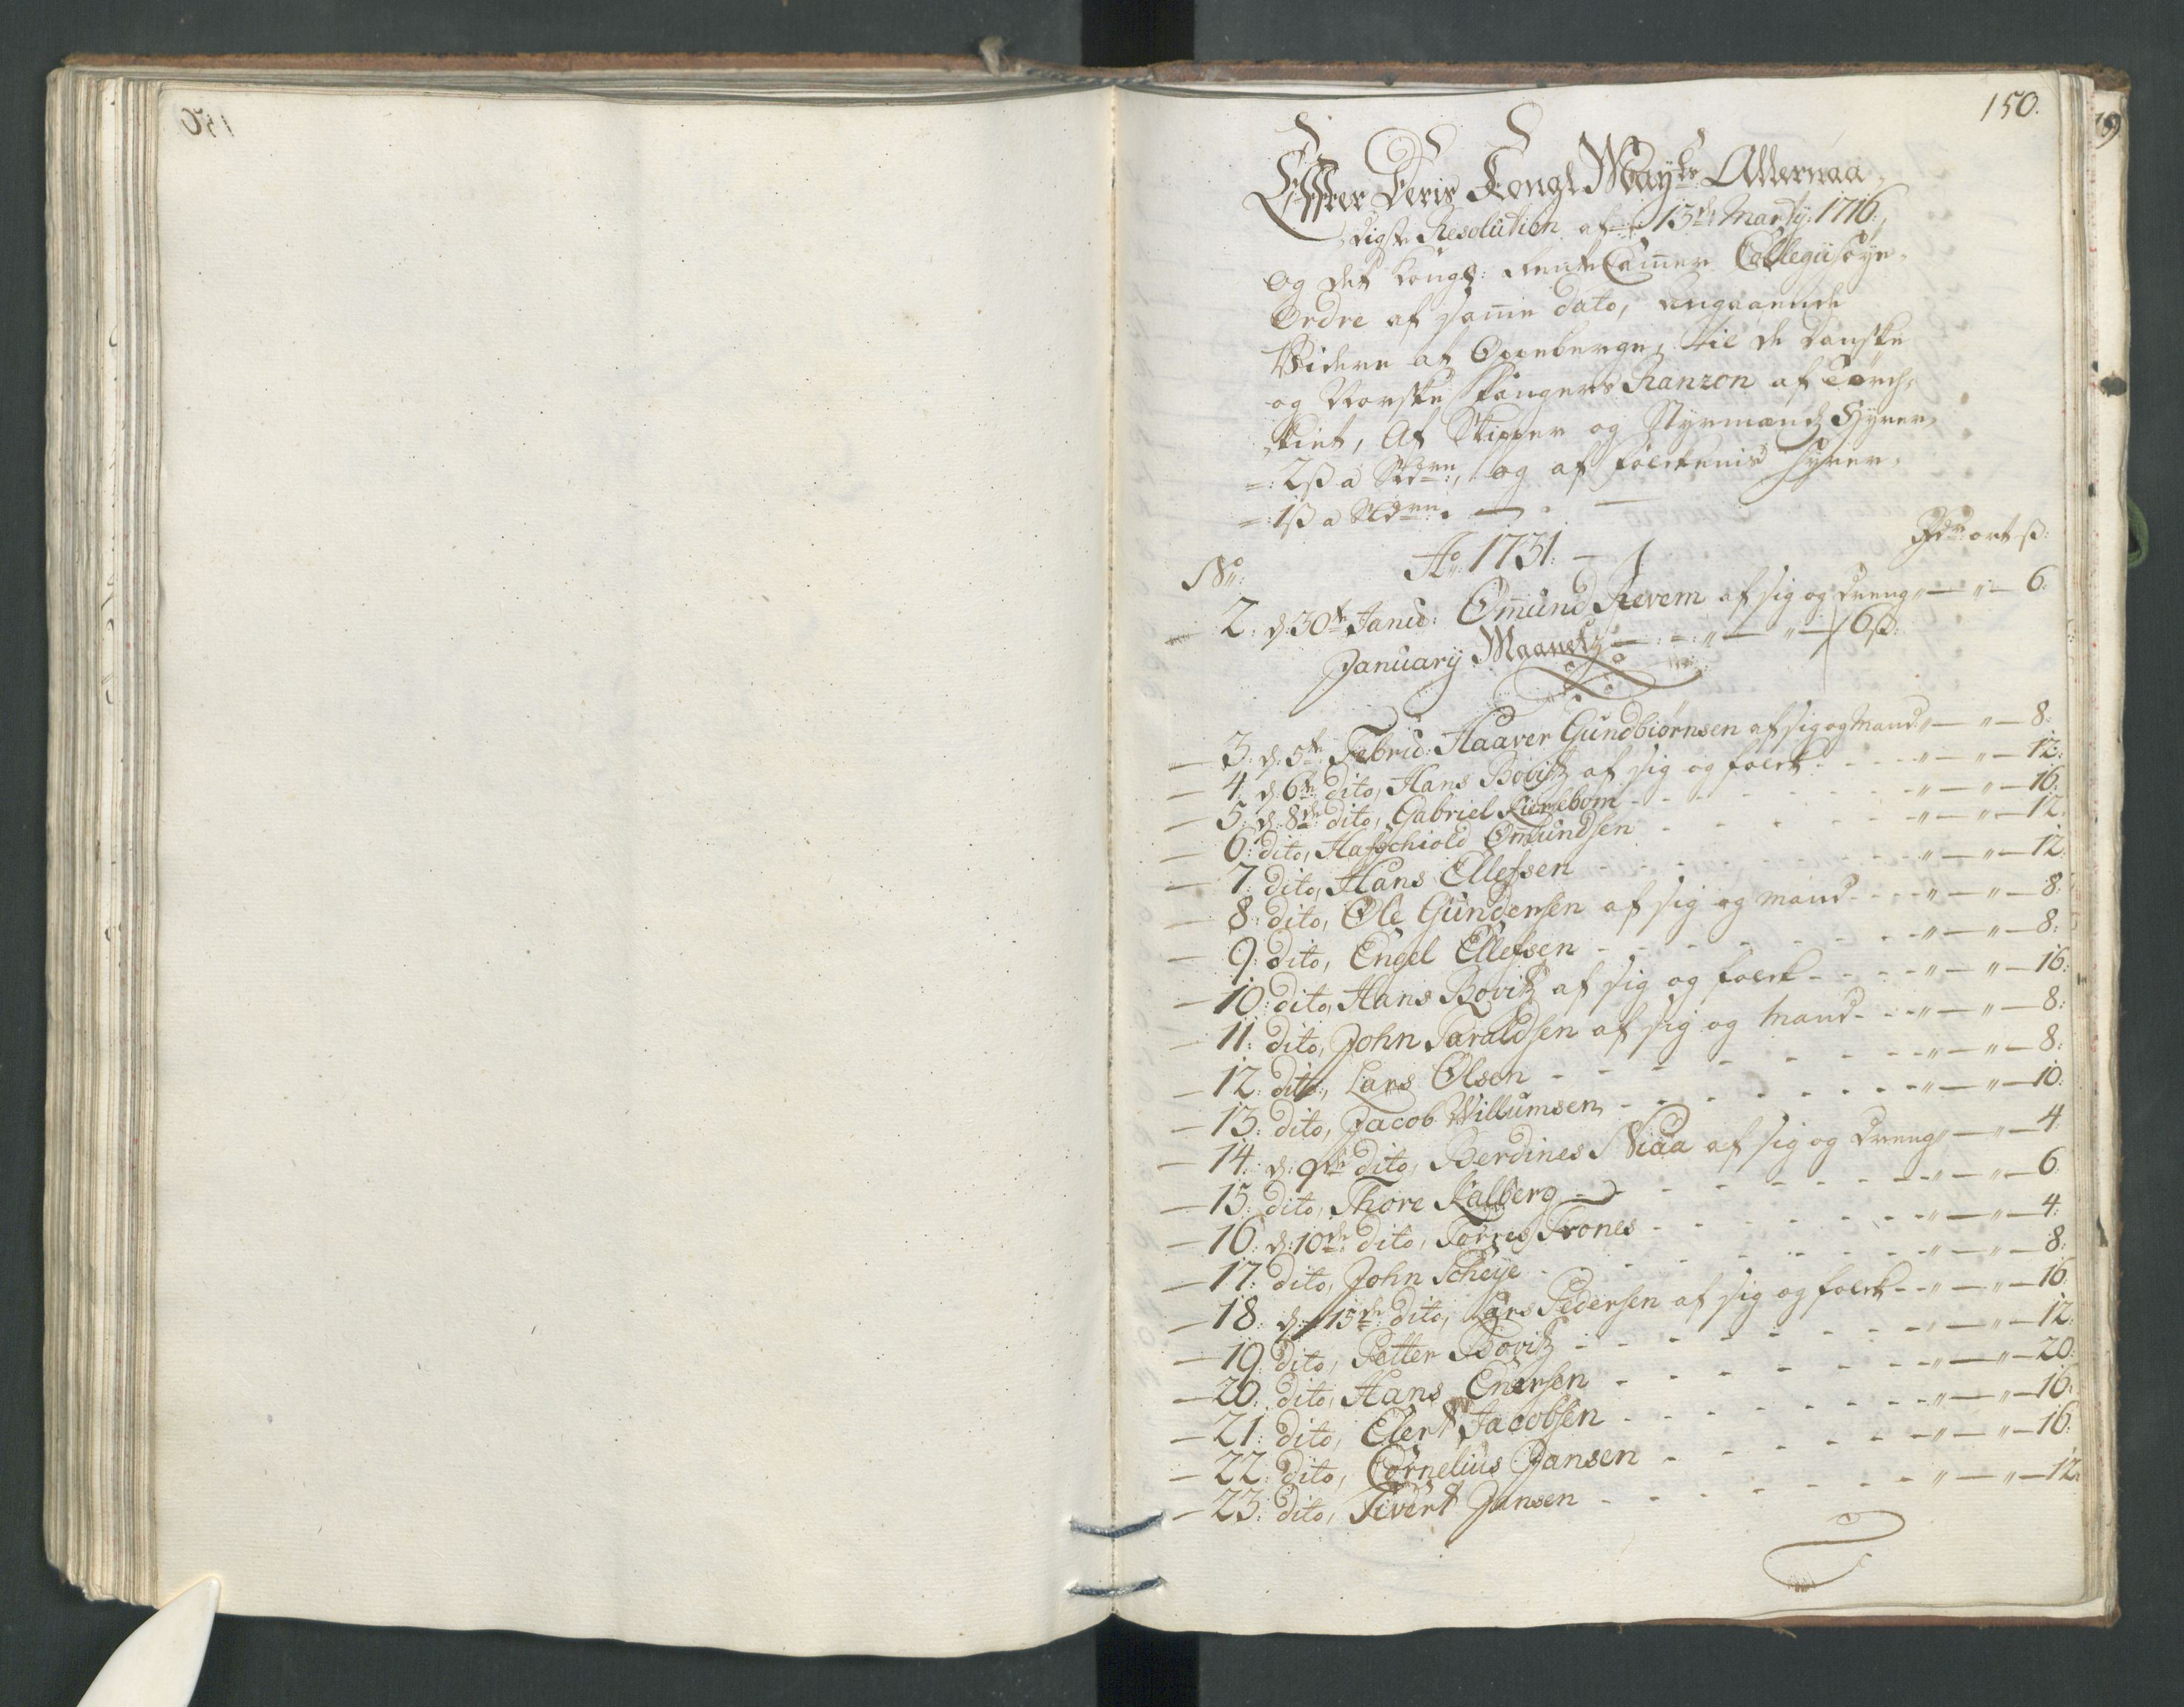 150.
Effter Deris Kongl Mayts Allernaa-
digste Resolution af 13de Marty: 1716,
og det Kongl: Rente Cammer Collegii söye-
Ordre af samme dato, angaaende
Widere at Oppeberge, til de danske
og Norske Fangers Ranzon af Törch-
kiet, Af Skipper og Styrmænds Hyrer,
=: 2 ß a Rdrn:, og af folckenis hyrer,
=: 1 ß a Rdrn: —
Rdr: ort ß:
No: Ao: 1731: —
— 2: d: 30te Janu: Omund Revem af sig og dreng „ — „ — 6:
January Maanets — : = : „ — „ — 6 ß:
— 3: d: 5te Febru: Haaver Gundbiörnsen af sig og Mand „ — „ — 8:
— 4: d: 6te dito, Hans Bövitz af sig og folck - - - „ — „ — 12:
— 5: d: 8de dito, Gabriel Kierulbom - - - „ — „ — 16:
— 6: dito, Hafschiold Omundsen - - - „ — „ — 12:
— 7: dito, Hans Ellefsen - - - „ — „ — 12:
— 8: dito, Ole Gundersen af sig og mand - - - „ — „ — 8:
— 9: dito, Engel Ellefsen - - - „ — „ — 8:
— 10: dito, Hans Bövitz af sig og folck - - - „ — „ — 16:
— 11: dito, John Taraldsen af sig og Mand - - - „ — „ — 8:
— 12: dito, Lars Olsen - - - „ — „ — 8:
— 13: dito, Jacob Willumsen - - - „ — „ — 10:
— 14: d: 9de dito, Berdines Niaa af sig og dreng „ — „ — 4:
— 15: dito, Thore Kalberg - - - „ — „ — 6:
— 16: d: 10de dito, Torres Trones - - - „ — „ — 4:
— 17: dito, John Scheye - - - „ — „ — 8:
— 18: d: 15de dito, Lars Pedersen af sig og folck - - „ — „ — 16:
— 19: dito, Petter Bovitz - - - „ — „ — 12:
— 20: dito, Hans Enersen - - - „ — „ — 20:
— 21: dito, Elert Jacobsen - - - „ — „ — 16:
— 22: dito, Cornelius Jansen - - - „ — „ — 16:
— 23: dito, Sivert Jansen - - - „ — „ — 12: